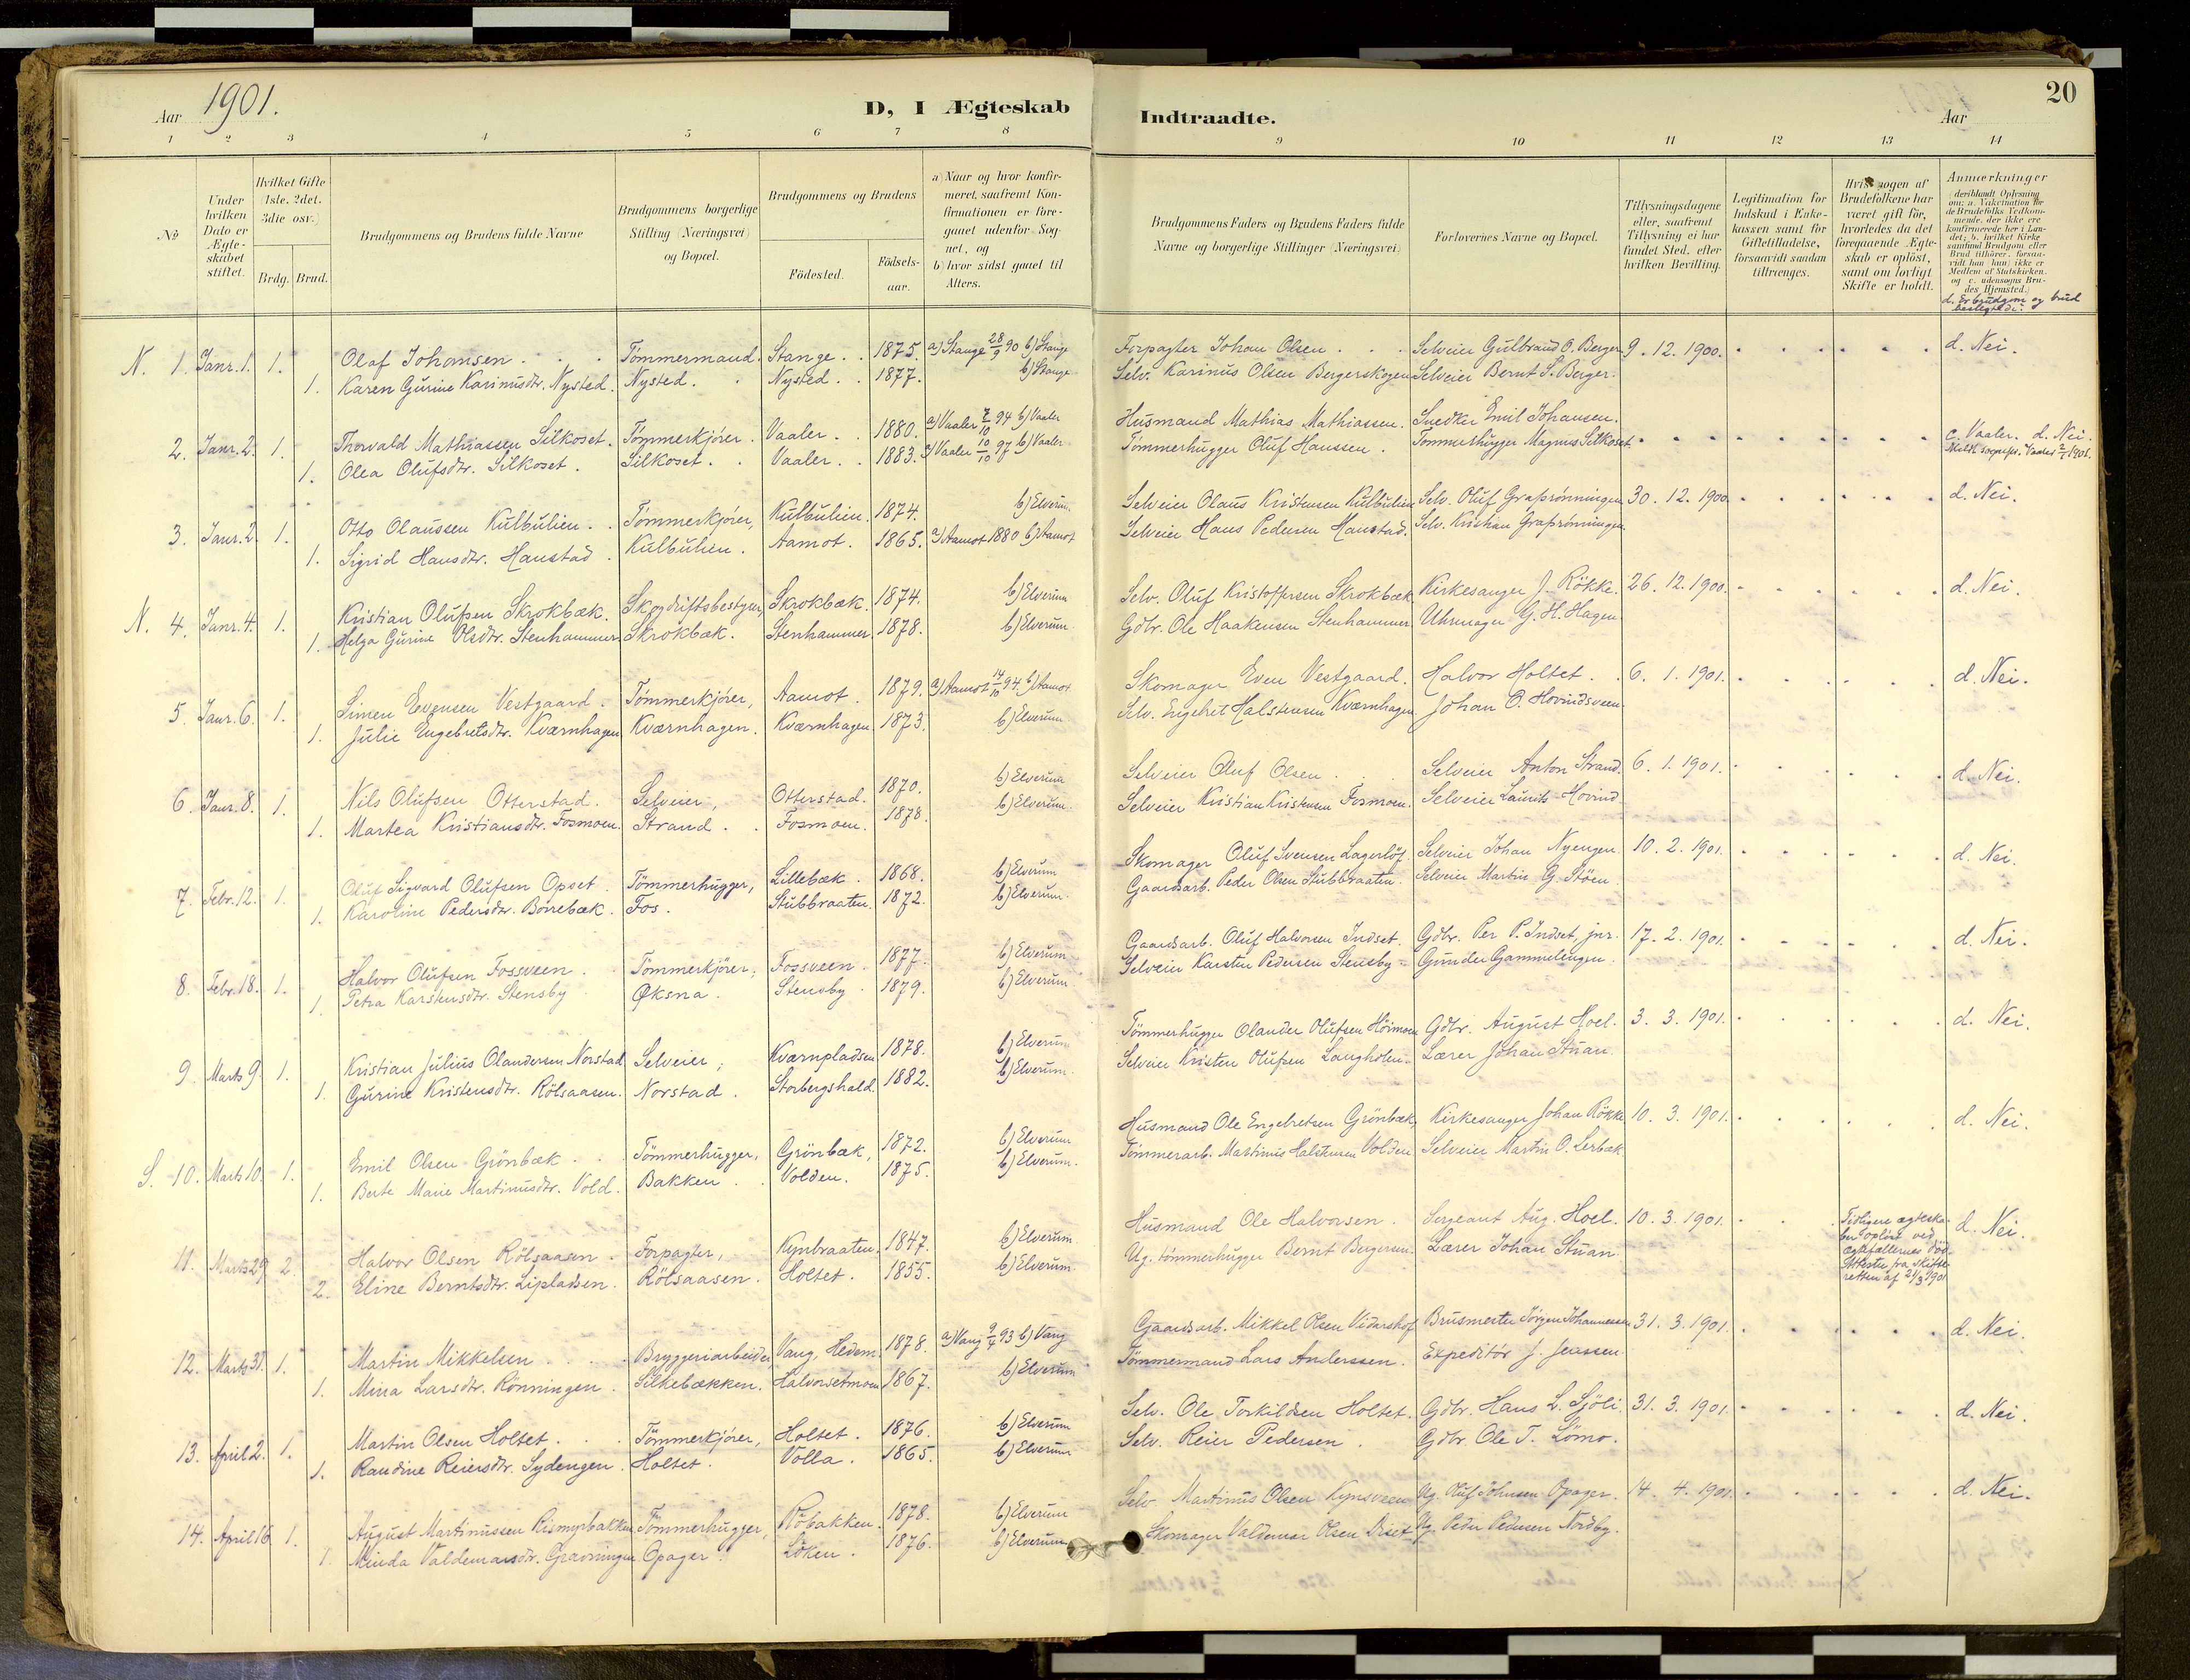 Aar 1901.
D, I Ægteskab
Indtraadte.
Aar
20
1 2 3 4 5 6 7 8 9 10 11 12 13 14
№
Under hvilken Dato er Ægteskabet stiftet.
Hvilket Gifte (1ste, 2det, 3die osv.)
Brdg. Brud.
Brudgommens og Brudens fulde Navne
Brudgommens borgerlige Stilling (Næringsvei) og Bopæl.
Brudgommens og Brudens
Födested.
Födselsaar.
a) Naar og hvor konfirmeret, saafremt Konfirmationen er foregaaet udenfor Sognet, og
b) hvor sidst gaaet til Alters.
Brudgommens Faders og Brudens Faders fulde Navne og borgerlige Stillinger (Næringsvei)
Forlovernes Navne og Bopæl.
Tillysningsdagene eller, saafremt Tillysning ei har fundet Sted, efter hvilken Bevilling.
Legitimation for Indskud i Enkekassen samt for Giftetilladelse, forsaavidt saadan tiltrænges.
Hvis nogen af Brudefolkene har været gift för, hvorledes da det foregaaende Ægteskab er oplöst, samt om lovligt Skifte er holdt.
Anmærkninger (deriblandt Oplysning om: a. Vakcination for de Brudefolks Vedkommende, der ikke ere konfirmerede her i Landet; b. hvilket Kirkesamfund Brudgom eller Brud tilhörer, forsaavidt han (hun) ikke er Medlem af Statskirken, og c. udensogns Brudes Hjemsted.)
d. Er brudgom og brud beslegtede?
N. 1. Janr. 1. 1. Olaf Johansen Tömmermand. Stange 1875. a) Stange 28/9 90 b) Stange Forpagter Johan Olsen Selveier Gulbrand O. Berger 9. 12. 1900. d. Nei.
1. Karen Gurine Karinusdtr. Nysted. Nysted. Nysted 1877. b) Stange Selv. Karinus Olsen Bergerskogen Selveier Bernt S. Berger.
2. Janr. 2. 1. Thorvald Mathiassen Silkoset. Tömmerkjörer. Vaaler. 1880. a) Vaaler 7/10 94 b) Vaaler Husmand Mathias Mathiassen. Snedker Emil Johansen. c. Vaaler. d. Nei.
1. Olea Olufsdtr. Silkoset. Silkoset. Vaaler. 1883. a) Vaaler 10/10 97 b) Vaaler Tömmerhugger Oluf Hanssen. Tömmerhugger Magnus Silkoset Meldt sognepr. Vaaler 2/1 1901.
3. Janr. 2. 1. Otto Olaussen Kulbulien. Tömmerkjörer, Kulbulien. 1874. b) Elverum. Selveier Olaus Kristensen Kulbulien Selv. Oluf Grafsrönningen 30. 12. 1900. d. Nei.
1. Sigrid Hansdtr. Hanstad. Kulbulien. Aamot. 1865. a) Aamot 1880 b) Aamot Selveier Hans Pedersen Hanstad. Selv. Kristian Grafsrönningen
N. 4. Janr. 4. 1. Kristian Olufsen Skrokbæk. Skogdriftsbestyrer, Skrokbæk. 1874. b) Elverum Selv. Oluf Kristoffersen Skrokbæk Kirkesanger J. Rökke. 26. 12. 1900. d. Nei.
1. Helga Gurine Olsdtr. Stenhammer Skrokbæk. Stenhammer 1878. b) Elverum Gdbr. Ole Haakensen Stenhammer. Uhrmager G. H. Hagen.
5. Janr. 6. 1. Simen Evensen Vestgaard. Tömmerkjörer, Aamot. 1879. a) Aamot 14/10 94. b) Aamot. Skomager Even Vestgaard. Halvor Holtet. 6. 1. 1901. d. Nei.
1. Julie Engebretsdtr. Kværnhagen Kværnhagen. Kværnhagen. 1873. b) Elverum. Selv. Engebret Halstensen Kværnhagen. Johan O. Hovindsveen.
6. Janr. 8. 1. Nils Olufsen Otterstad. Selveier, Otterstad. 1870. b) Elverum Selveier Oluf Olsen. Selveier Anton Strand. 6. 1. 1901. d. Nei.
1. Martea Kristiansdtr. Fosmoen. Strand. Fosmoen. 1878. b) Elverum. Selveier Kristian Kristensen Fosmoen. Selveier Laurits Hovind
7. Febr. 12. 1. Oluf Sigvard Olufsen Opset. Tömmerhugger, Lillebæk. 1868. b) Elverum Skomager Oluf Svensen Lagerlöf. Selveier Johan Nyengen 10. 2. 1901. d. Nei.
1. Karoline Pedersdtr. Borrebæk. Fos. Stubbraaten. 1872. b) Elverum. Gaardsarb. Peder Olsen Stubbraaten. Selveier Martin G. Stöen.
8. Febr. 18. 1. Halvor Olufsen Fossveen. Tömmerkjörer, Fossveen. 1877. b) Elverum Gaardsarb. Oluf Halvorsen Indset. Gdbr. Per P. Indset, jnr. 17. 2. 1901. d. Nei.
1. Petra Karstensdtr. Stensby Øksna. Stensby. 1879. b) Elverum Selveier Karsten Pedersen Stensby. Gunder Gammelengen.
9. Marts 9. 1. Kristian Julius Olandersen Norstad Selveier, Kværnpladsen 1878. b) Elverum Tömmerhugger Olander Olufsen Höimoen Gdbr. August Hoel. 3. 3. 1901. d. Nei.
1. Gurine Kristensdtr. Rölsaasen. Norstad. Storbergshald. 1882. b) Elverum. Selveier Kristen Olufsen Langholen Lærer Johan Stuan.
S. 10. Marts 10. 1. Emil Olsen Grönbæk. Tömmerhugger, Grönbæk, 1872. b) Elverum Husmand Ole Engebretsen Grönbæk, Kirkesanger Johan Rökke 10. 3. 1901. d. Nei.
1. Berte Marie Martinusdtr. Vold. Bakken. Volden. 1875. b) Elverum. Tömmerarb. Martinus Halstensen Volden Selveier Martin O. Lerbæk
11. Marts 29. 2. Halvor Olsen Rölsaasen. Forpagter, Kynbraaten. 1847. b) Elverum Husmand Ole Halvorsen. Sergeant Aug. Hoel. 10. 3. 1901. Tidligere ægteskaber oplöst ved ægtefællernes död. Attester fra skifteretten af 21/3 1901 d. Nei.
2. Eline Berntsdtr. Lipladsen. Rölsaasen. Holtet. 1855. b) Elverum Ug. tömmerhugger Bernt Bergersen. Lærer Johan Stuan
12. Marts 31. 1. Martin Mikkelsen Bryggeriarbeider, Vang, Hedem. 1878. a) Vang 9/4 93 b) Vang Gaardsarb. Mikkel Olsen Vidarshof Brusmester Jörgen Johannessen 31. 3. 1901. d. Nei.
1. Mina Larsdtr. Rönningen. Silkebækken. Halvorsetmoen 1867. b) Elverum Tömmermand Lars Anderssen. Expeditör J. Jenssen
13. April 2. 1. Martin Olsen Holtet. Tömmerkjörer, Holtet. 1876. b) Elverum Selv. Ole Torkildsen Holtet. Gdbr. Hans L. Sjöli. 31. 3. 1901. d. Nei.
1. Randine Reiersdtr. Sydengen. Holtet. Volla. 1865. b) Elverum Selv. Reier Pedersen. Gdbr. Ole T. Lömo.
14. April 16. 1. August Martinussen Rismyrbakken Tömmerhugger, Röbakken. 1878. b) Elverum Selv. Martinus Olsen Kynsveen Ug. Oluf Johnsen Opager. 14. 4. 1901. d. Nei.
1. Minda Valdemarsdtr. Opager. Löken. 1876. b) Elverum Skomager Valdemar Olsen Ug. Peder Pedersen Nordby.